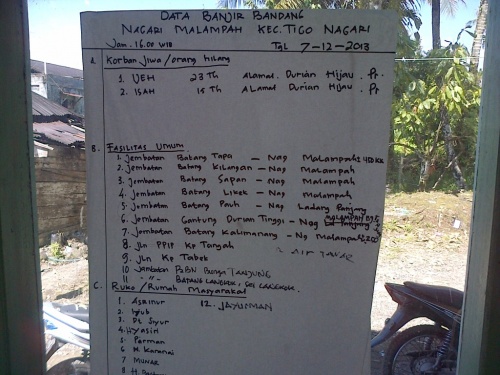 DATA BANJIR BANDANG
NAGARI MALAMPAH KEC. TIGO NAGARI
Jam. 16.00 WIB TGL 7-12-2013
A. Korban Jiwa/orang hilang
1. UEH 23 Th Alamat. Durian Hijau. Pr.
2. ISAH 15 Th Alamat Durian Hijau. Pr
B. FASILITAS UMUM
1. Jembatan Batang Tapa - Nag Malampah ± 450 KK
2. Jembatan Batang Kilangan - Nag Malampah
3. Jembatan Batang Sapan - Nag Malampah
4. Jembatan Batang Likek - Nag Malampah
5. Jembatan Batang Pauh - Nag Ladang Panjang
6. Jembatan Gantung Durian Tinggi - Nag MALAMPAH
7. Jembatan Batang Kalimanang - Ng Malampah ± 200
8. Jln PPIP Kp Tangah
9. Jln Kp Tabek
10 Jembatan BUNGA TANJUNG
11 -"- BATANG
C. Ruko/Rumah Masyarakat
1. Asrinur 12. JAYUSMAN
2. Iyub
3. Dt Siyur
4. Hyasin
5 Perman
6 H. Karanai
7 MUNAR
8 H